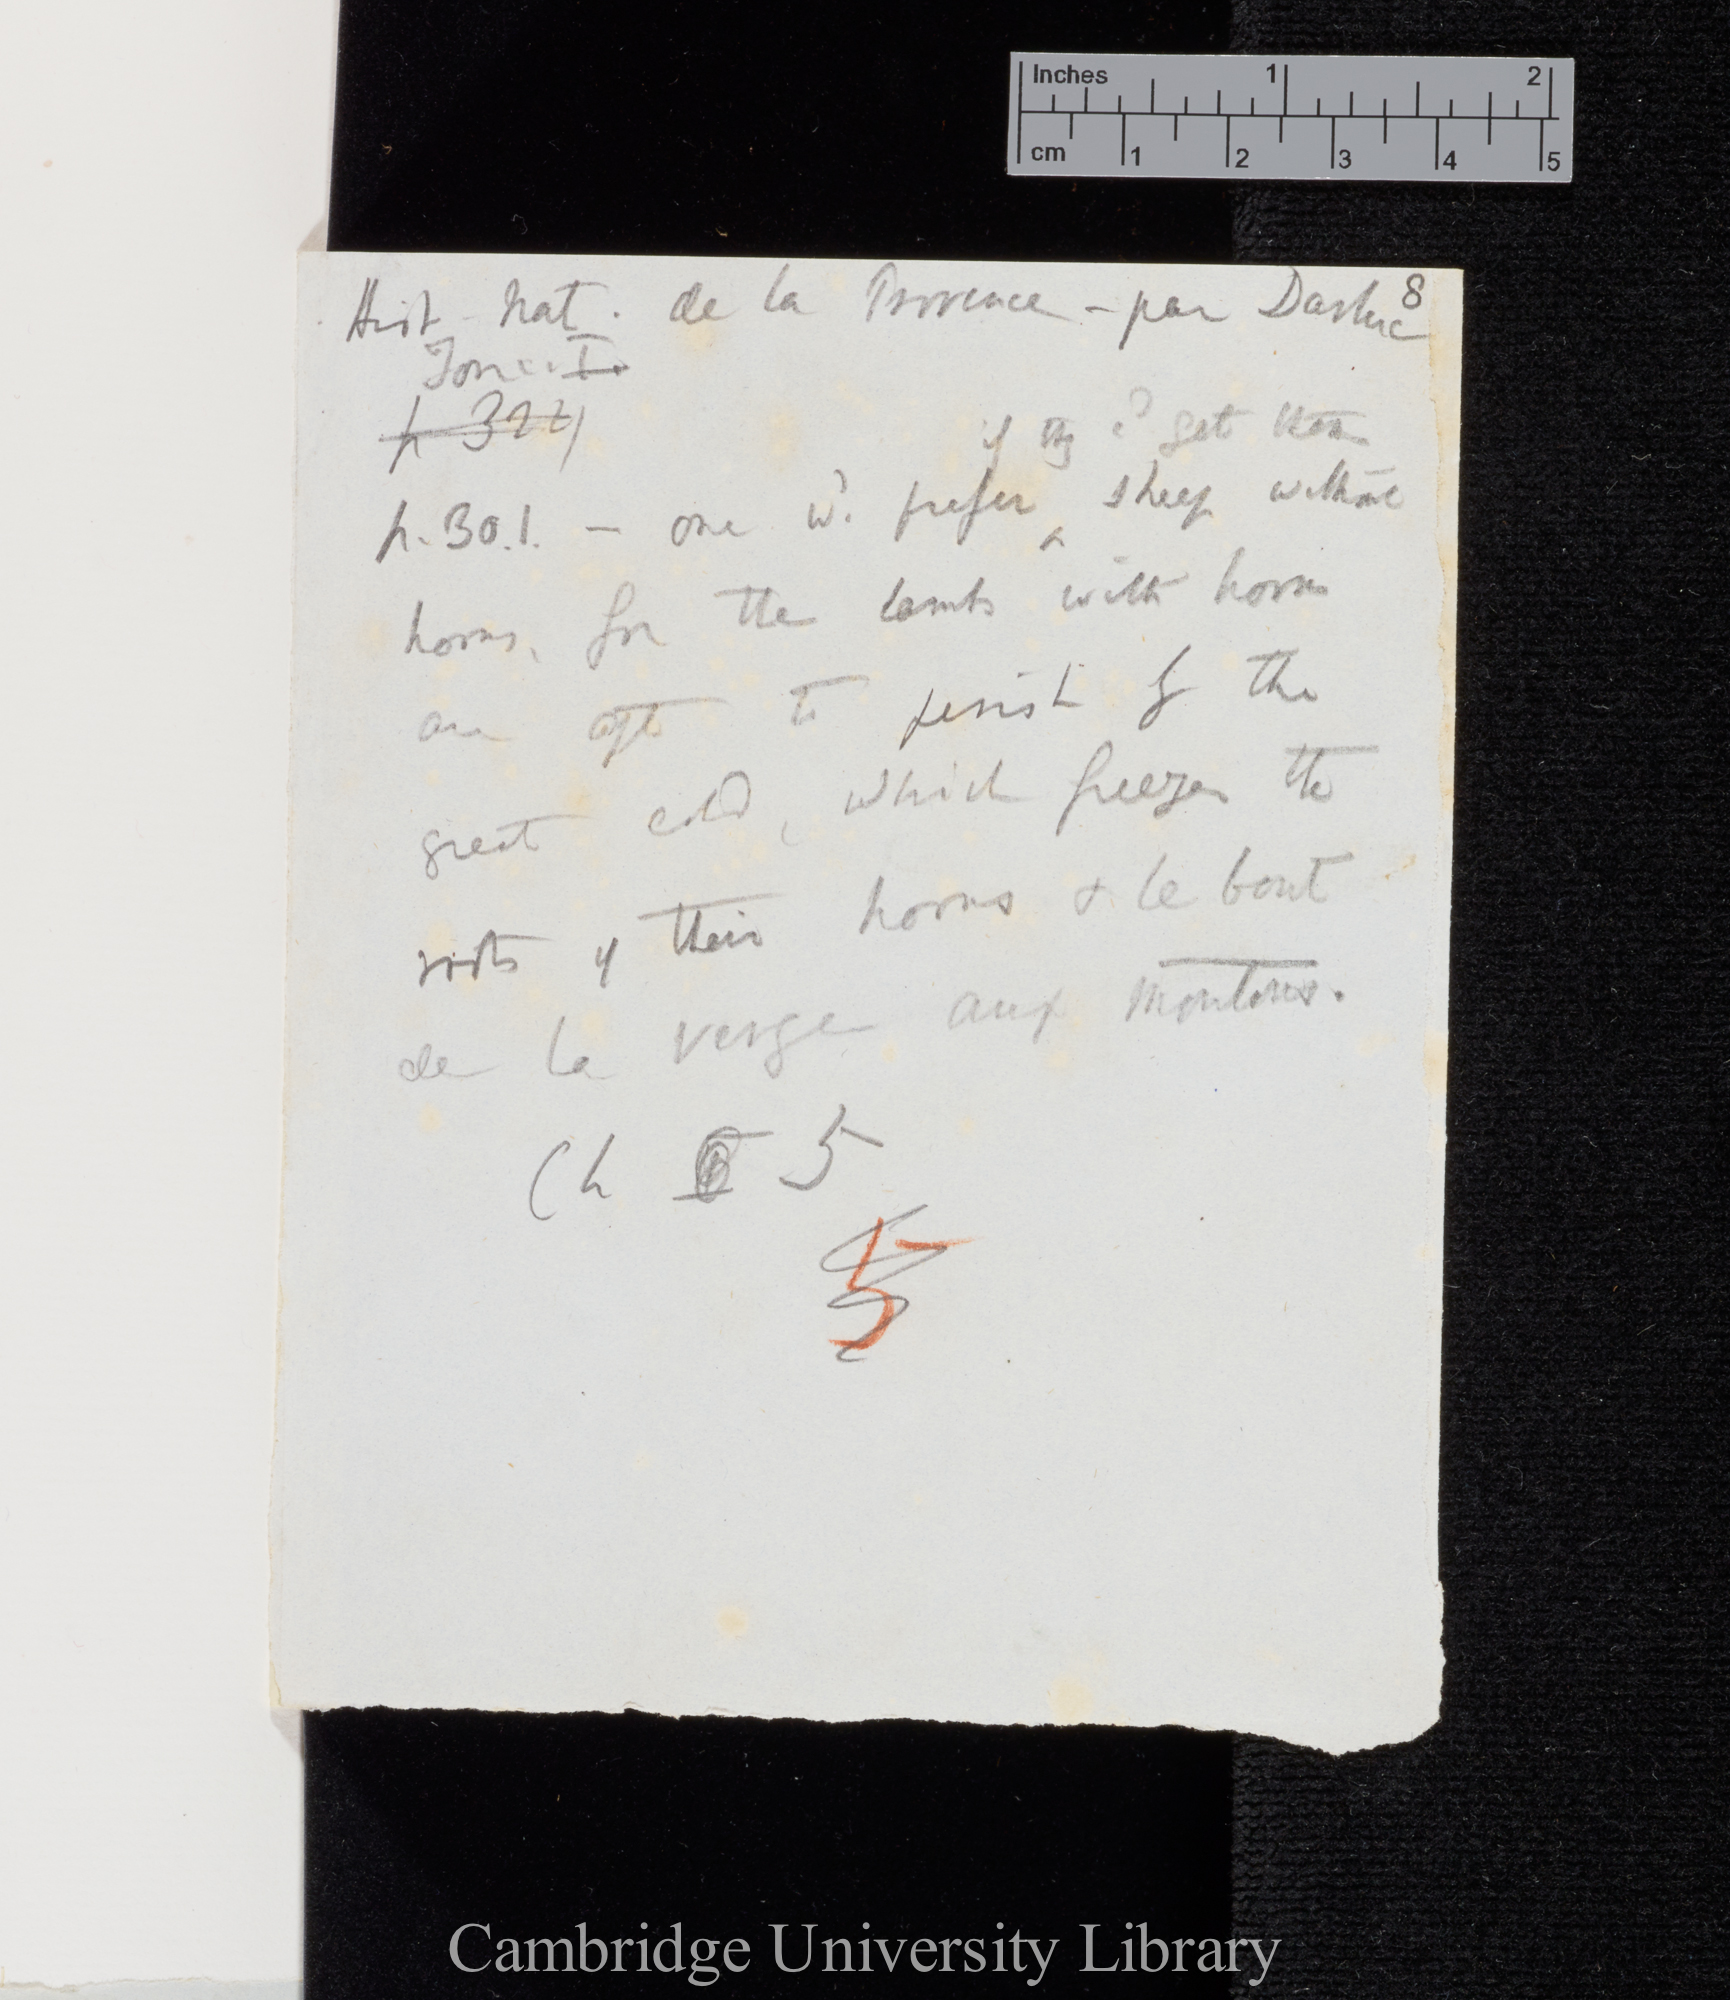 Inches 1 2
cm 1 2 3 4 5
8
Hist. Nat. de la Provence - par Darluc
Tom. I.
p 324
if they cd get them
p. 301. — one wd. prefer ^ sheep without
horns, for the lambs with horns
are apt to perish of the
great cold, which freezes the
roots of their horns & le bout
de la verge aux moutons.
Ch 5
5
Cambridge University Library